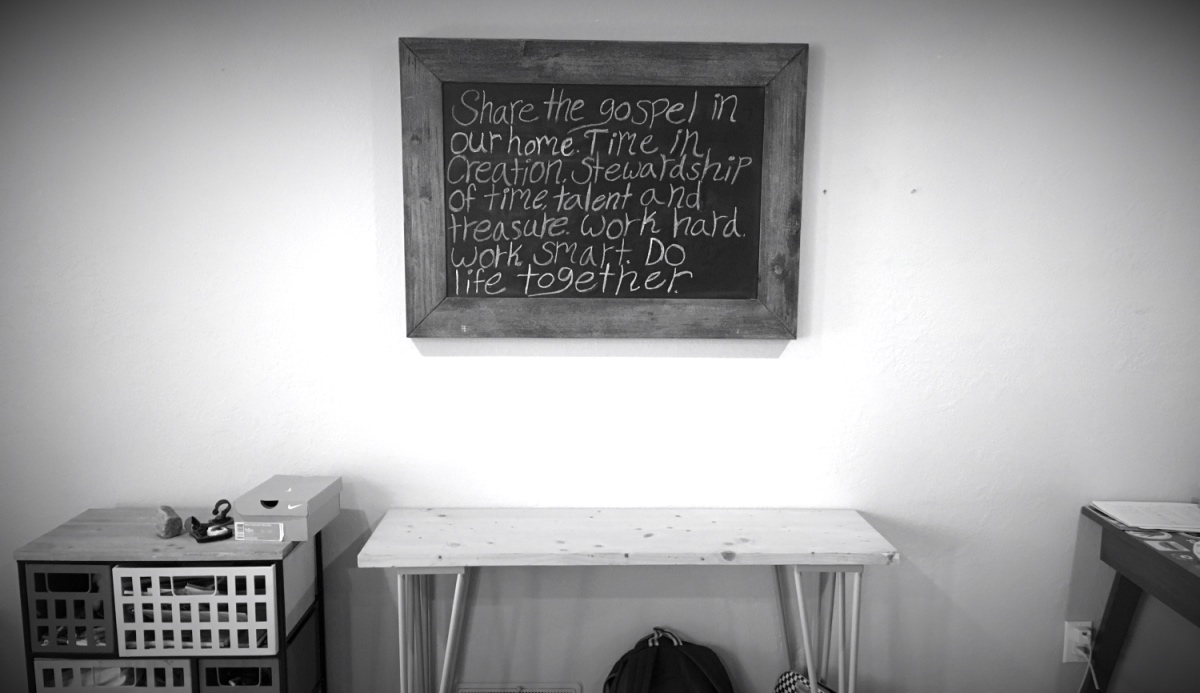 Share the gospel in
our home. Time in
Creation. Stewardship
of time, talent and
treasure. Work hard.
work smart. Do
life together.